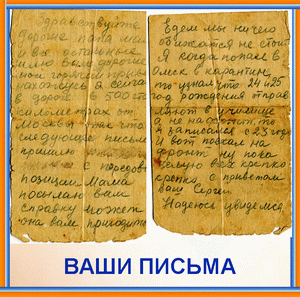 Здравствуйте
дорогие папа мама
и все остальные
мой горячий привет
нахожусь я сейчас
в дороге в 500
километрах от
Москвы так что
следующие письма
пришлю
с передовой
позиции Мама
посылаю вам
справку может
она вам пригодится
Едем мы ничего
обижатся не стоит
Я когда попал в
Омск в карантин
то узнал что 24 и 25
год рождения отправ
ляют в училище
а не на фронт, то
я записался с 23 года
И вот поехал на
фронт ну пока
целую всех крепко
крепко с приветом
ваш Сергей.
Надеюсь увидемся
ВАШИ ПИСЬМА